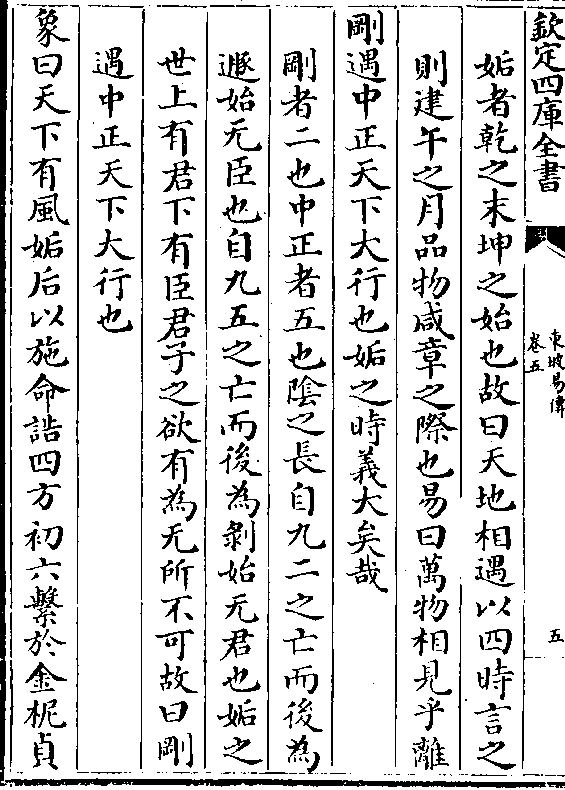 欽定四庫全書
東坡易傳
卷五
五
姤者乾之末坤之始也故曰天地相遇以四時言之
則建午之月品物咸章之際也易曰萬物相見乎離
剛遇中正天下大行也姤之時義大矣哉
剛者二也中正者五也陰之長自九二之亡而後為
遯始无臣也自九五之亡而後為剝始无君也姤之
世上有君下有臣君子之欲有為无所不可故曰剛
遇中正天下大行也
象曰天下有風姤后以施命誥四方初六繫於金柅貞